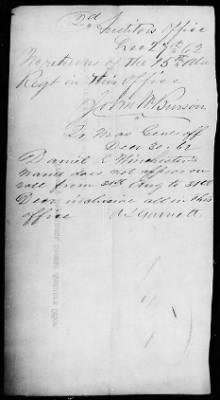 2d Auditors Office
Dec 27th 62
No returns of the 15th Ala
Regt in this Office
John W Burson
Dec 30, 62
Daniel C Winchester's
name does not appear on
roll from 31st Aug to 31st
Decr inclusive all in this
office